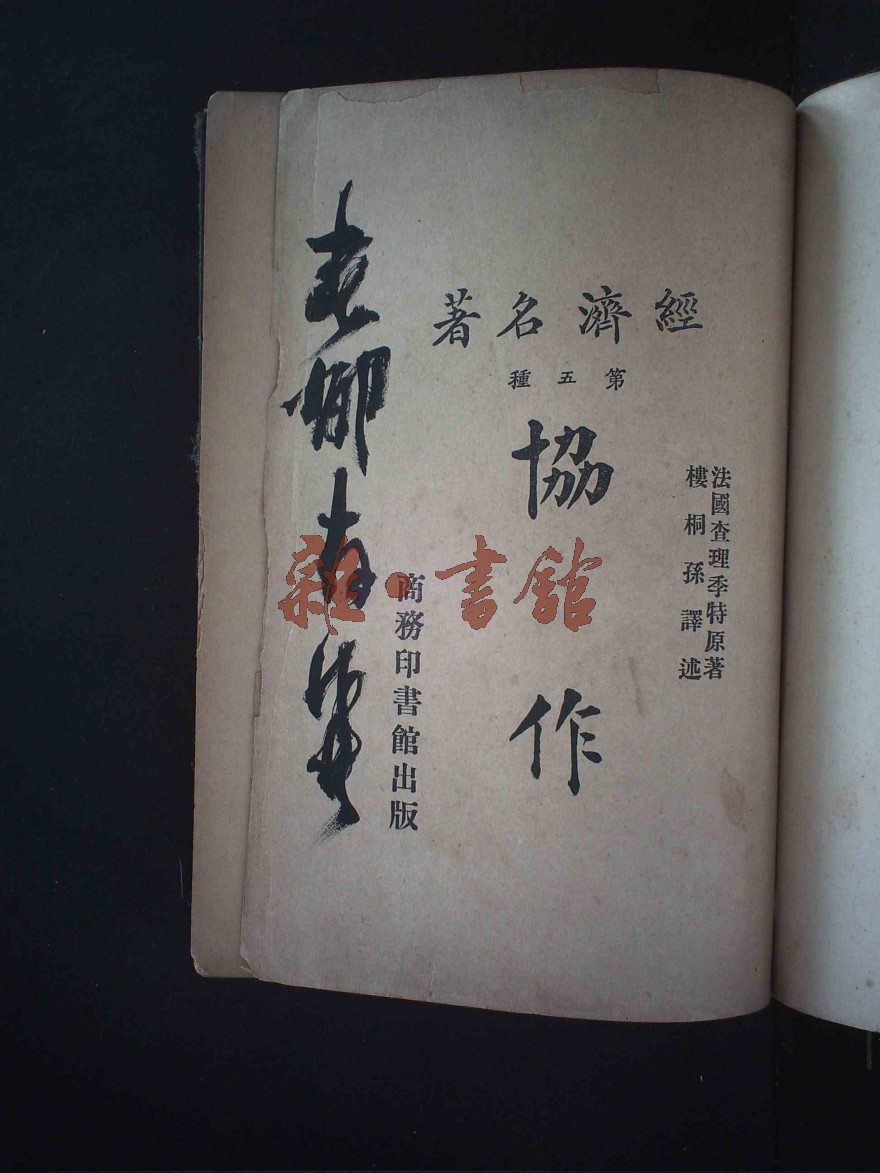 經濟名著
第五種
法國查理季特原著
樓桐孫譯述
協作
商務印書館出版
雜·書館